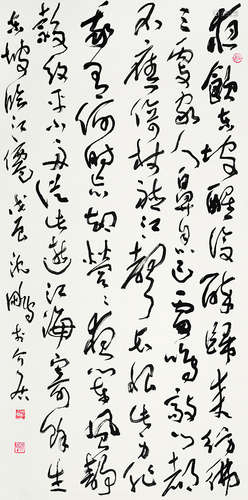 夜飲東坡醒復醉歸來彷彿
三更家人鼻息已雷鳴敲門都
不應倚杖聽江聲長恨此身非
我有何時忘卻營營夜闌風靜
縠紋平小舟從此逝江海寄餘生
東坡臨江僊戊辰沈鵬於介居